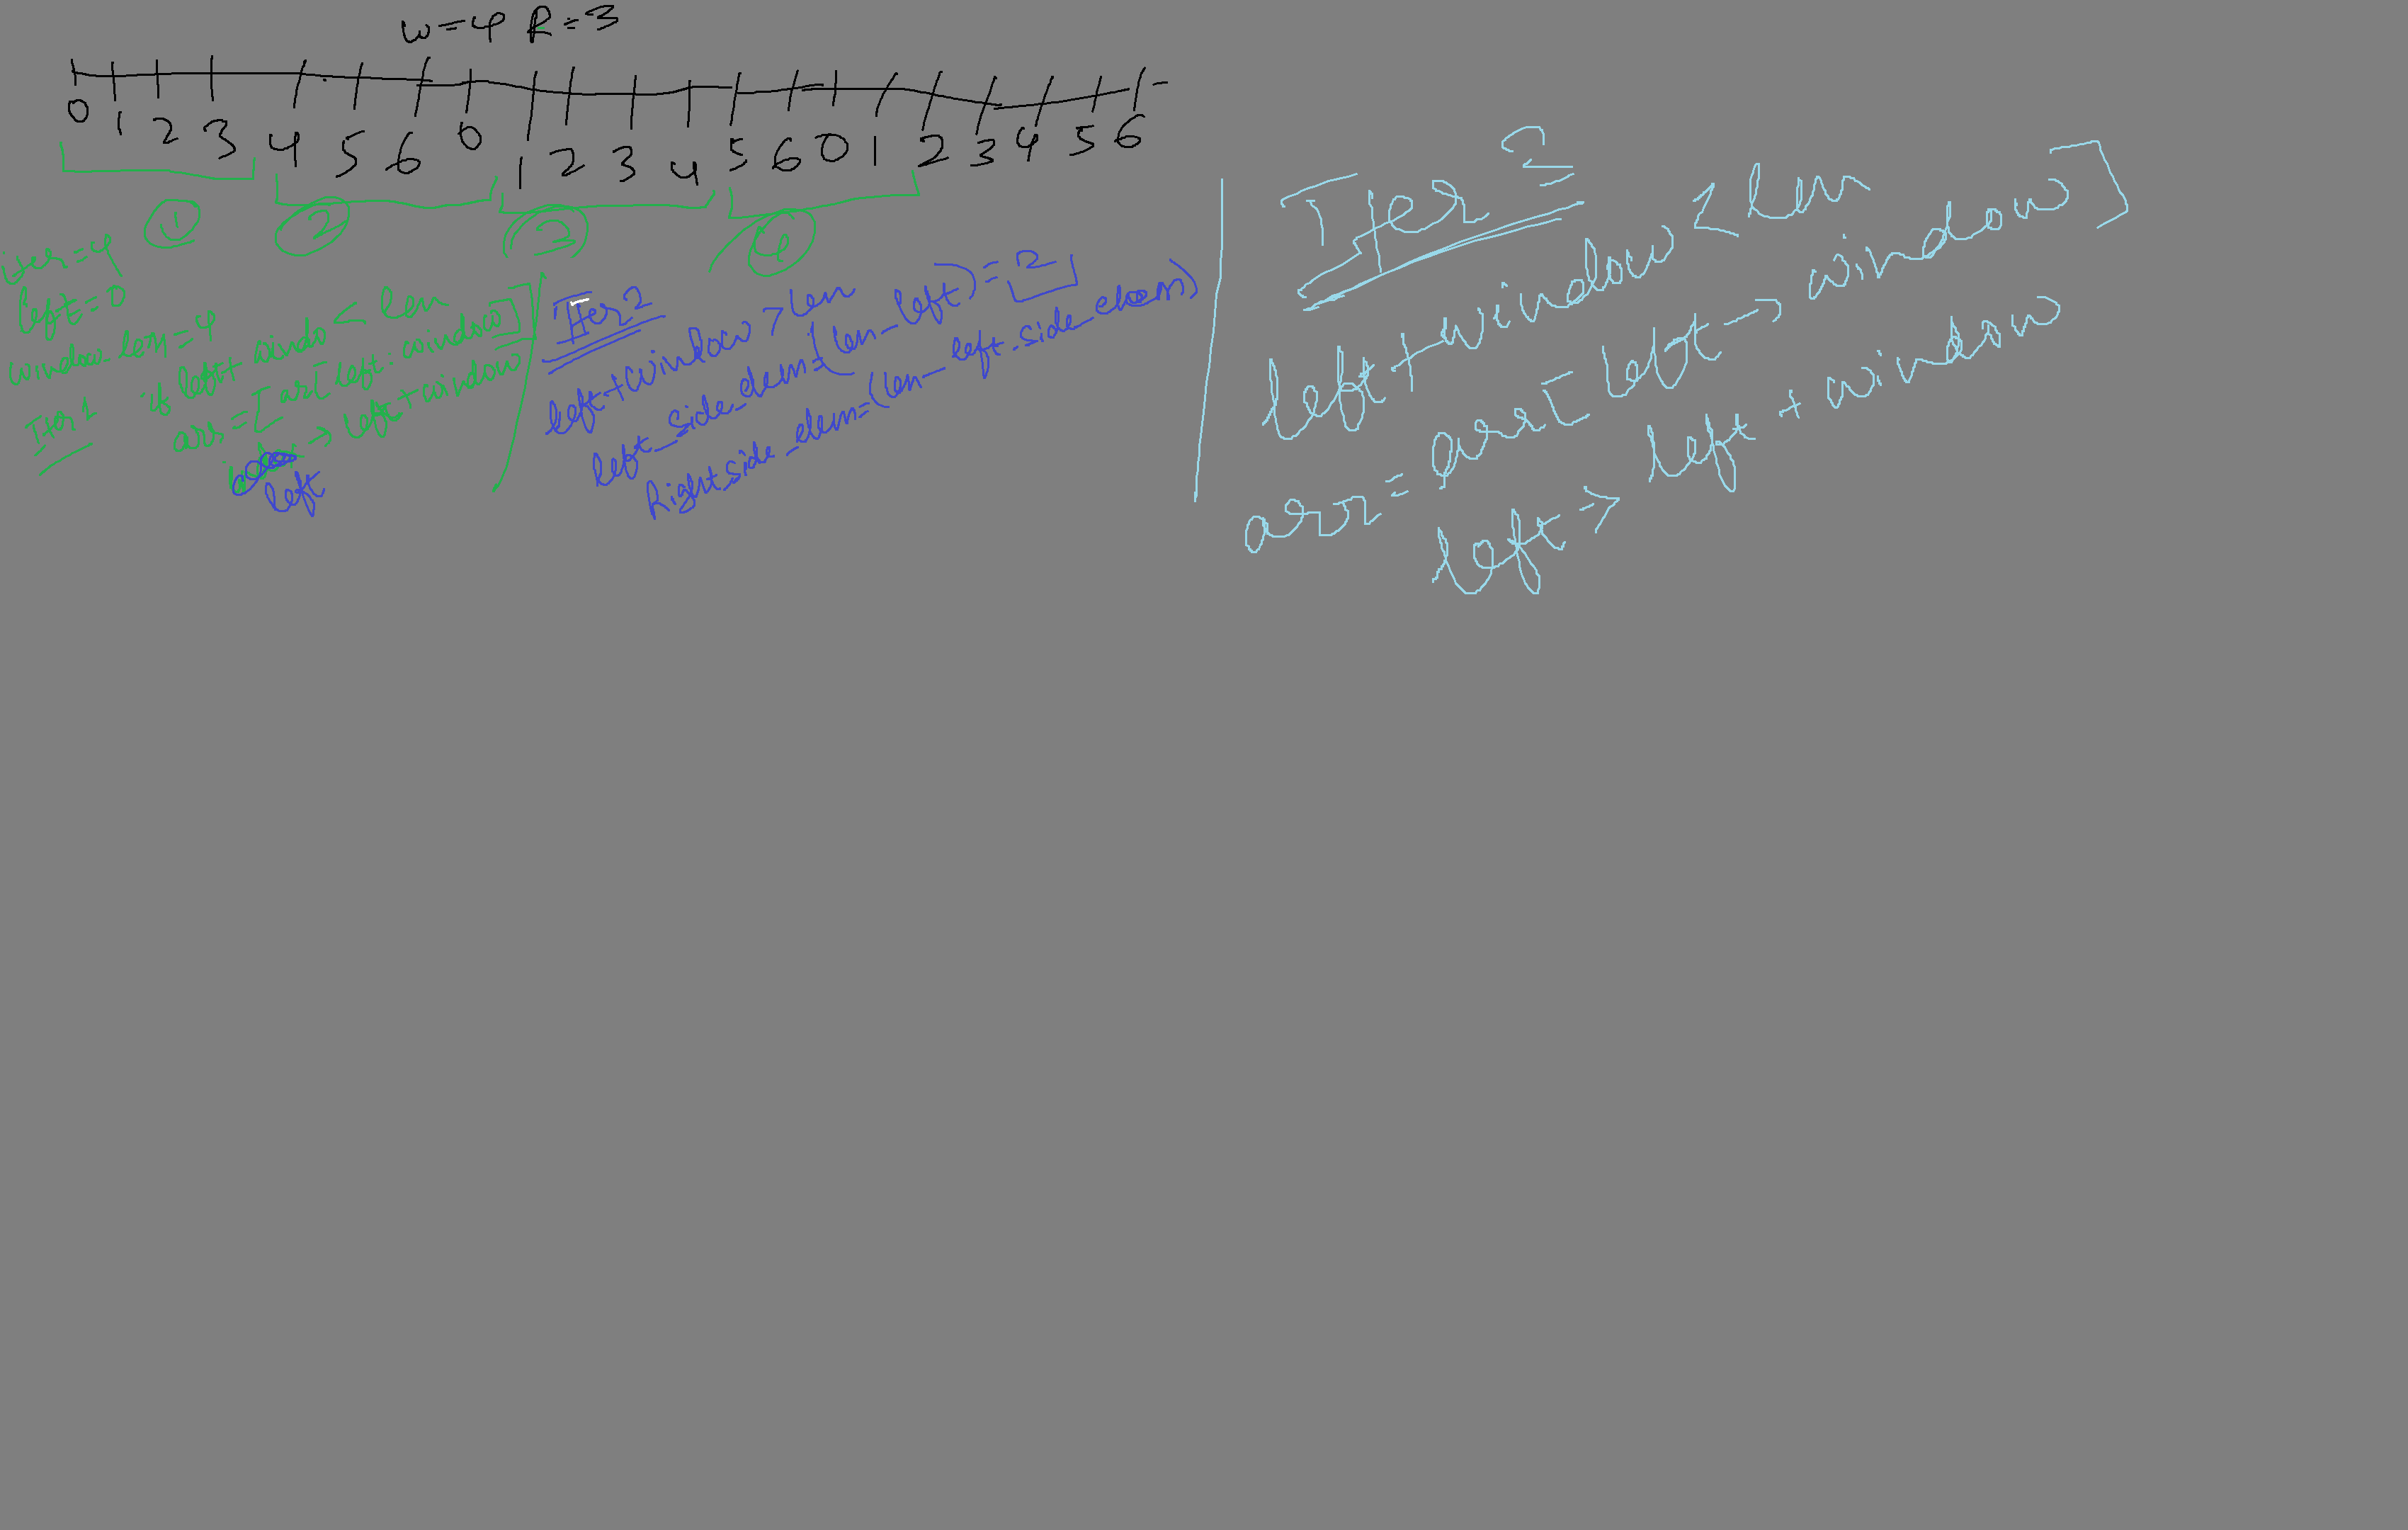 w=4 R=3
0 1 2 3 4 5 6 0 1 2 3 4 5 6 0 1 2 3 4 5 6
1 2 3 4
left=0
window-len=4
Iter 1
if left+windo < len
arr = [arr[left:window]]
left → left+window
left
Iter 2
left+window > len
left-side-elem = (len - left) = 2
Right side-elem = (len - left-side-elem)
left+window < len
left → window]
left → left + window